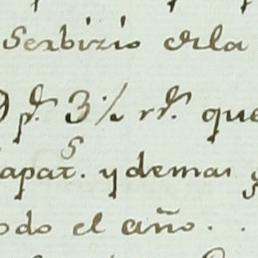 Serbizio de la
p.s 3 ½ r.s que
apat.s y demas
odo el año.